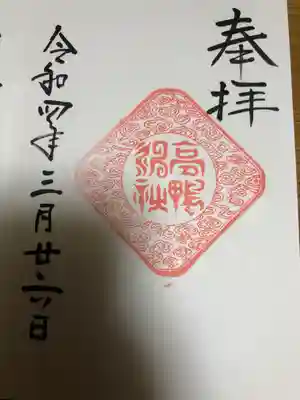 奉拝
高鴨
神社
令和四年三月廿六日